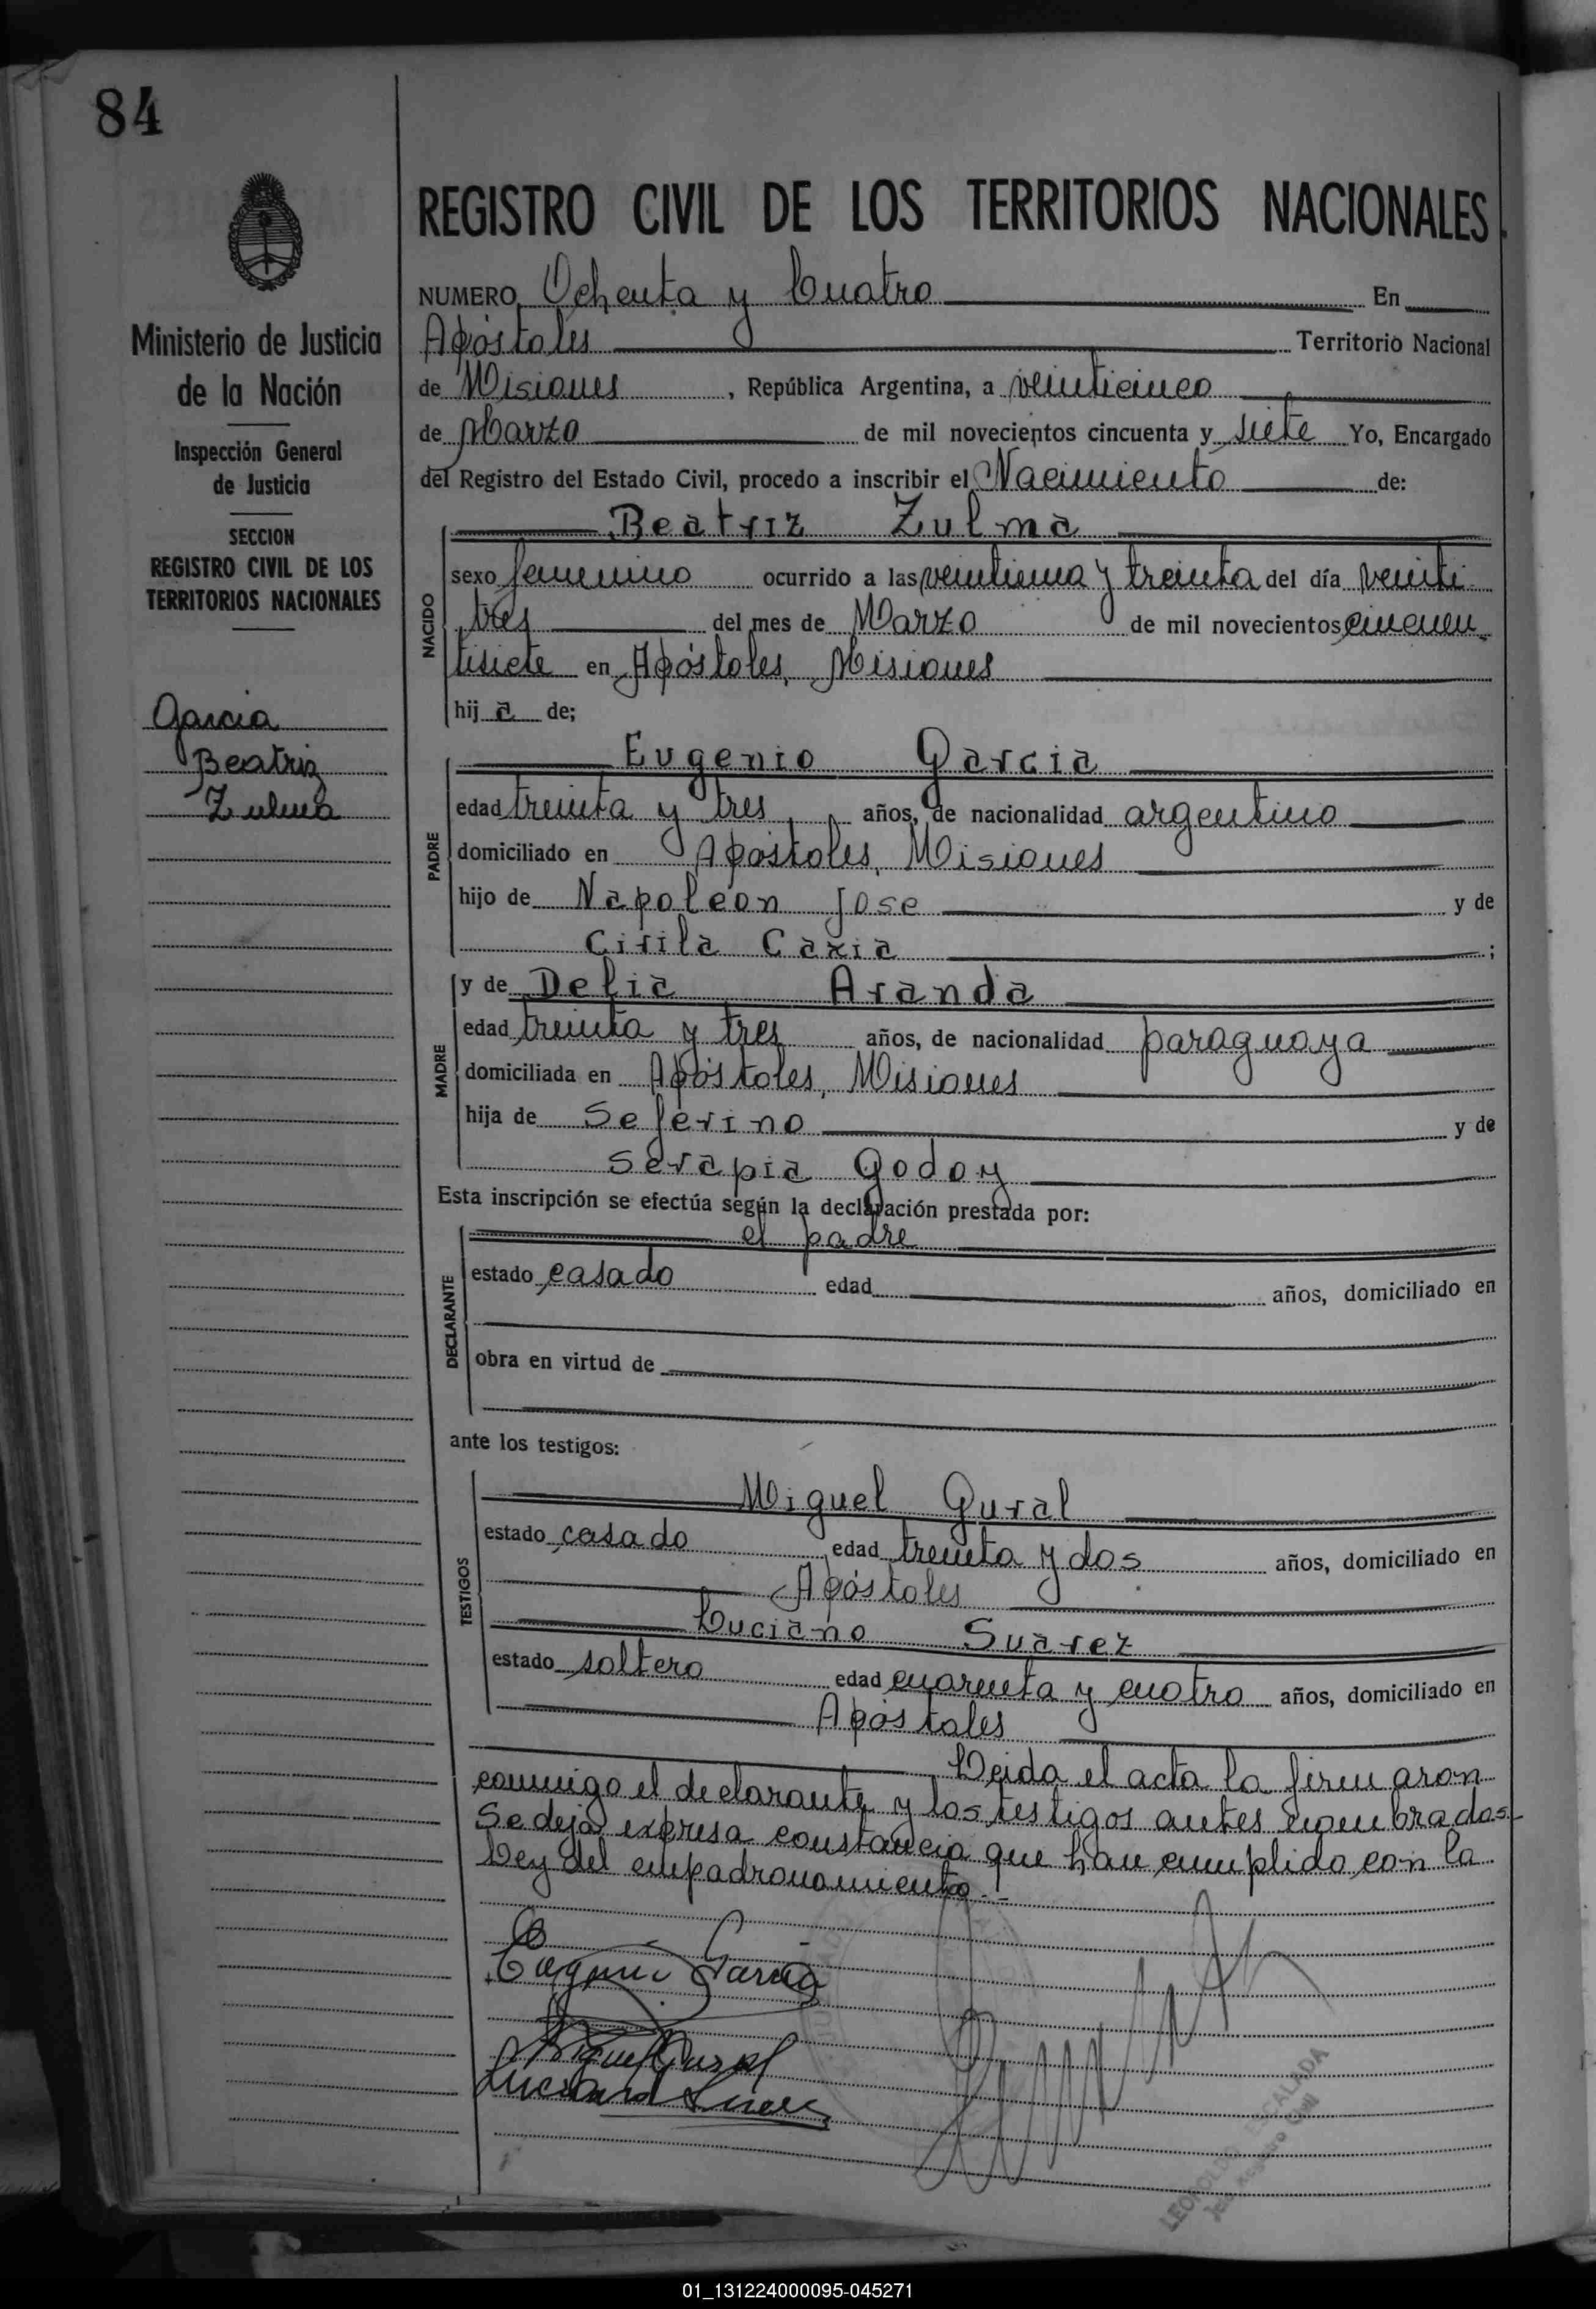 84
Ministerio de Justicia
de la Nación
Inspección General
de Justicia
SECCION
REGISTRO CIVIL DE LOS
TERRITORIOS NACIONALES
Garcia
Beatriz
Zulma
REGISTRO CIVIL DE LOS TERRITORIOS NACIONALES
NUMERO Ochenta y Cuatro En
Apóstoles Territorio Nacional
de Misiones, República Argentina, a veinticinco
de Marzo de mil novecientos cincuenta y siete Yo, Encargado
del Registro del Estado Civil, procedo a inscribir el Nacimiento de:
NACIDO
Beatriz Zulma
sexo femenino ocurrido a las veintiuna y treinta del día veinti
tres del mes de Marzo de mil novecientos cincuen
tisiete en Apóstoles, Misiones
hij a de;
PADRE
Eugenio Garcia
edad treinta y tres años, de nacionalidad argentino
domiciliado en Apóstoles, Misiones
hijo de Napoleón Jose y de
Cirila Caxia ;
MADRE
y de Delia Aranda
edad treinta y tres años, de nacionalidad paraguaya
domiciliada en Apóstoles, Misiones
hija de Seferino y de
Serapia Godoy
Esta inscripción se efectúa según la declaración prestada por:
DECLARANTE
el padre
estado casado edad años, domiciliado en
obra en virtud de
ante los testigos:
TESTIGOS
Miguel Gural
estado casado edad treinta y dos años, domiciliado en
Apóstoles
Luciano Suarez
estado soltero edad cuarenta y cuatro años, domiciliado en
Apóstoles
Leida el acta la firmaron
conmigo el declarante y los testigos antes nombrados.
Se deja expresa constancia que han cumplido con la
Ley del empadronamiento.-
Eugenio Garcia
Miguel Gural
Luciano Suarez
LEOPOLDO ESCALADA
Jefe Registro Civil
01_131224000095-045271